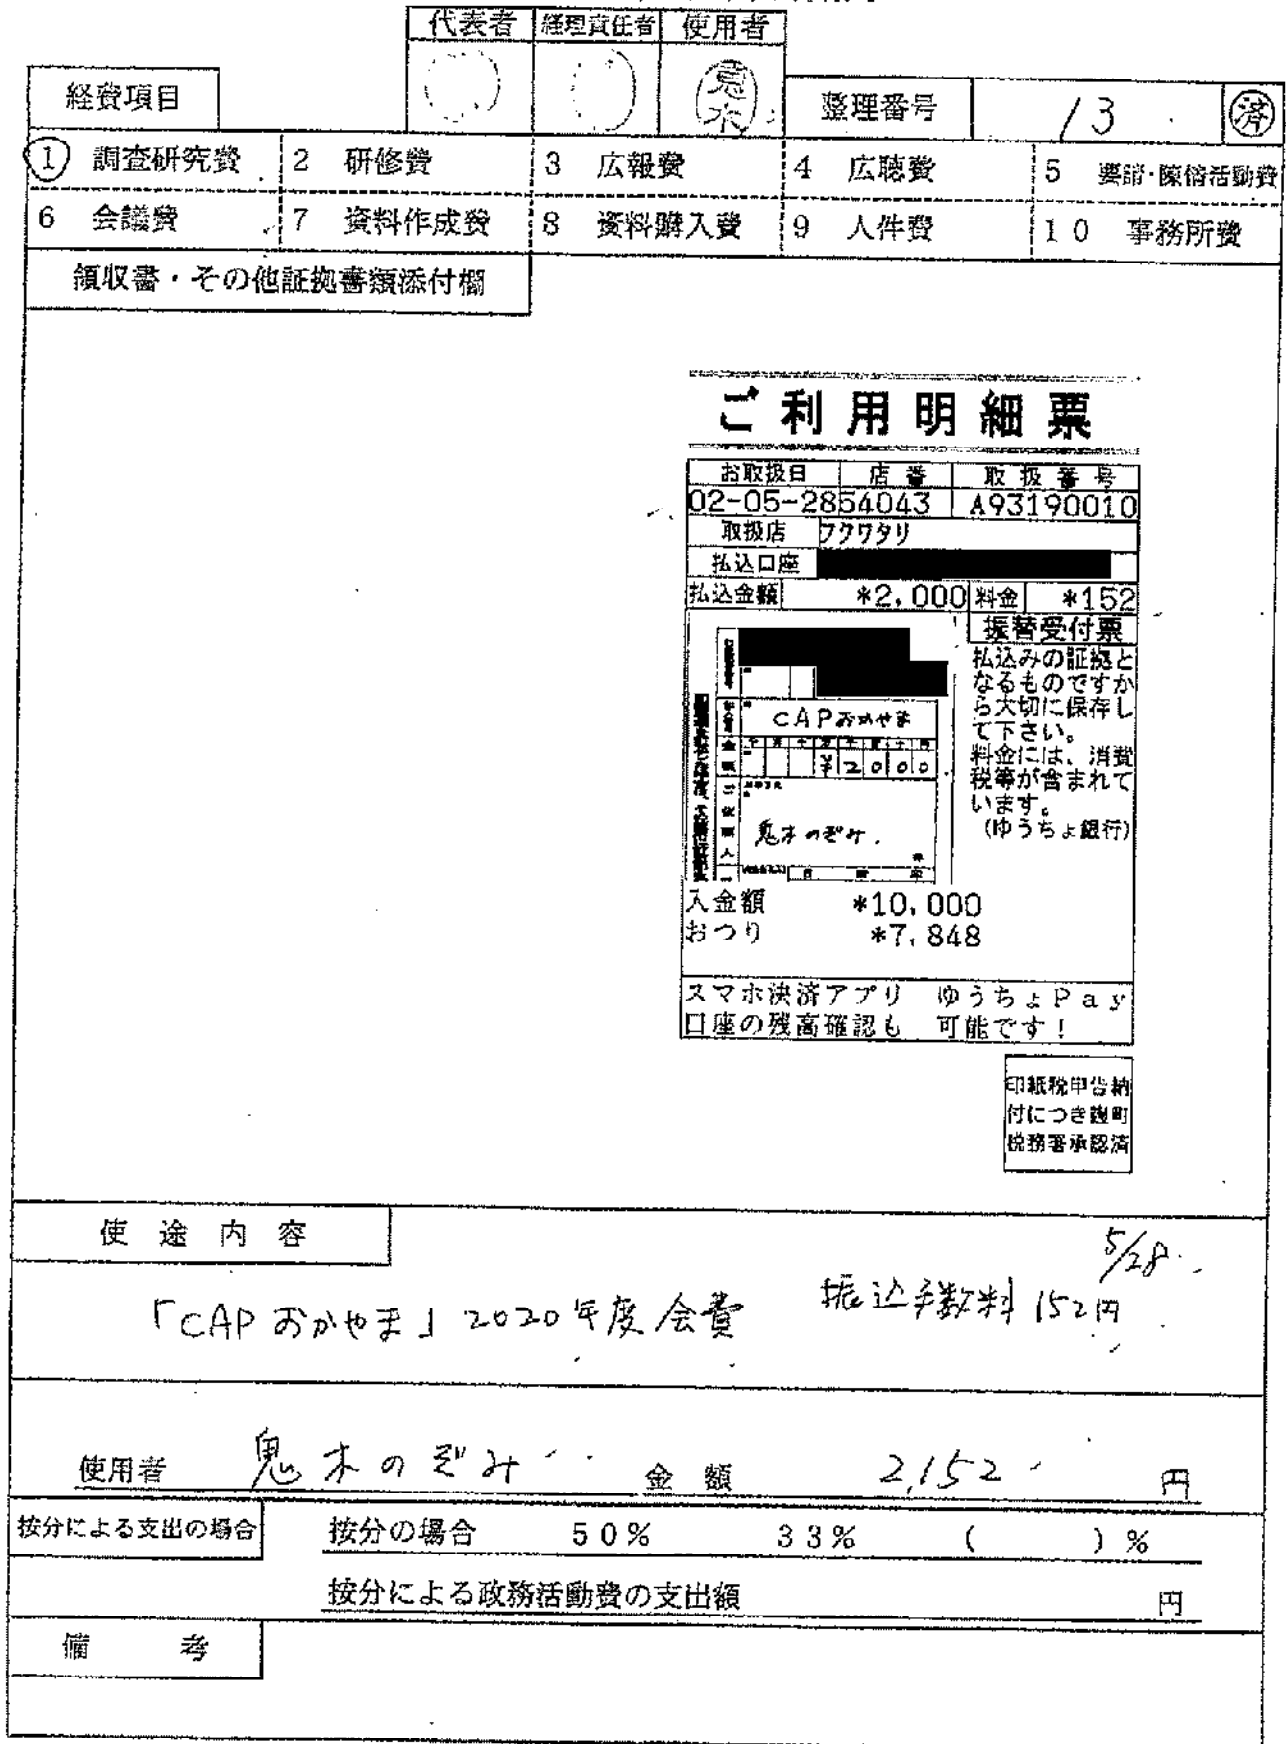 代表者 経理責任者 使用者
鬼木
経費項目 整理番号 13 済
1 調査研究費 2 研修費 3 広報費 4 広聴費 5 要請・陳情活動費
6 会議費 7 資料作成費 8 資料購入費 9 人件費 10 事務所費
領収書・その他証拠書類添付欄
ご利用明細票
お取扱日 店番 取扱番号
02-05-28 54043 A93190010
取扱店 フクワタリ
払込口座
払込金額 *2,000 料金 *152
振替受付票
払込みの証拠と
なるものですか
ら大切に保存し
て下さい。
料金には、消費
税等が含まれて
います。
(ゆうちょ銀行)
CAPおかやま
千 百 十 万 千 百 十 円
¥2000
鬼木のぞみ.
入金額 *10,000
おつり *7,848
スマホ決済アプリ ゆうちょPay
口座の残高確認も 可能です!
印紙税申告納
付につき麹町
税務署承認済
使途内容
5/28
「CAPおかやま」2020年度会費 振込手数料152円
使用者 鬼木のぞみ 金額 2,152 円
按分による支出の場合 按分の場合 50% 33% ( )%
按分による政務活動費の支出額 円
備考